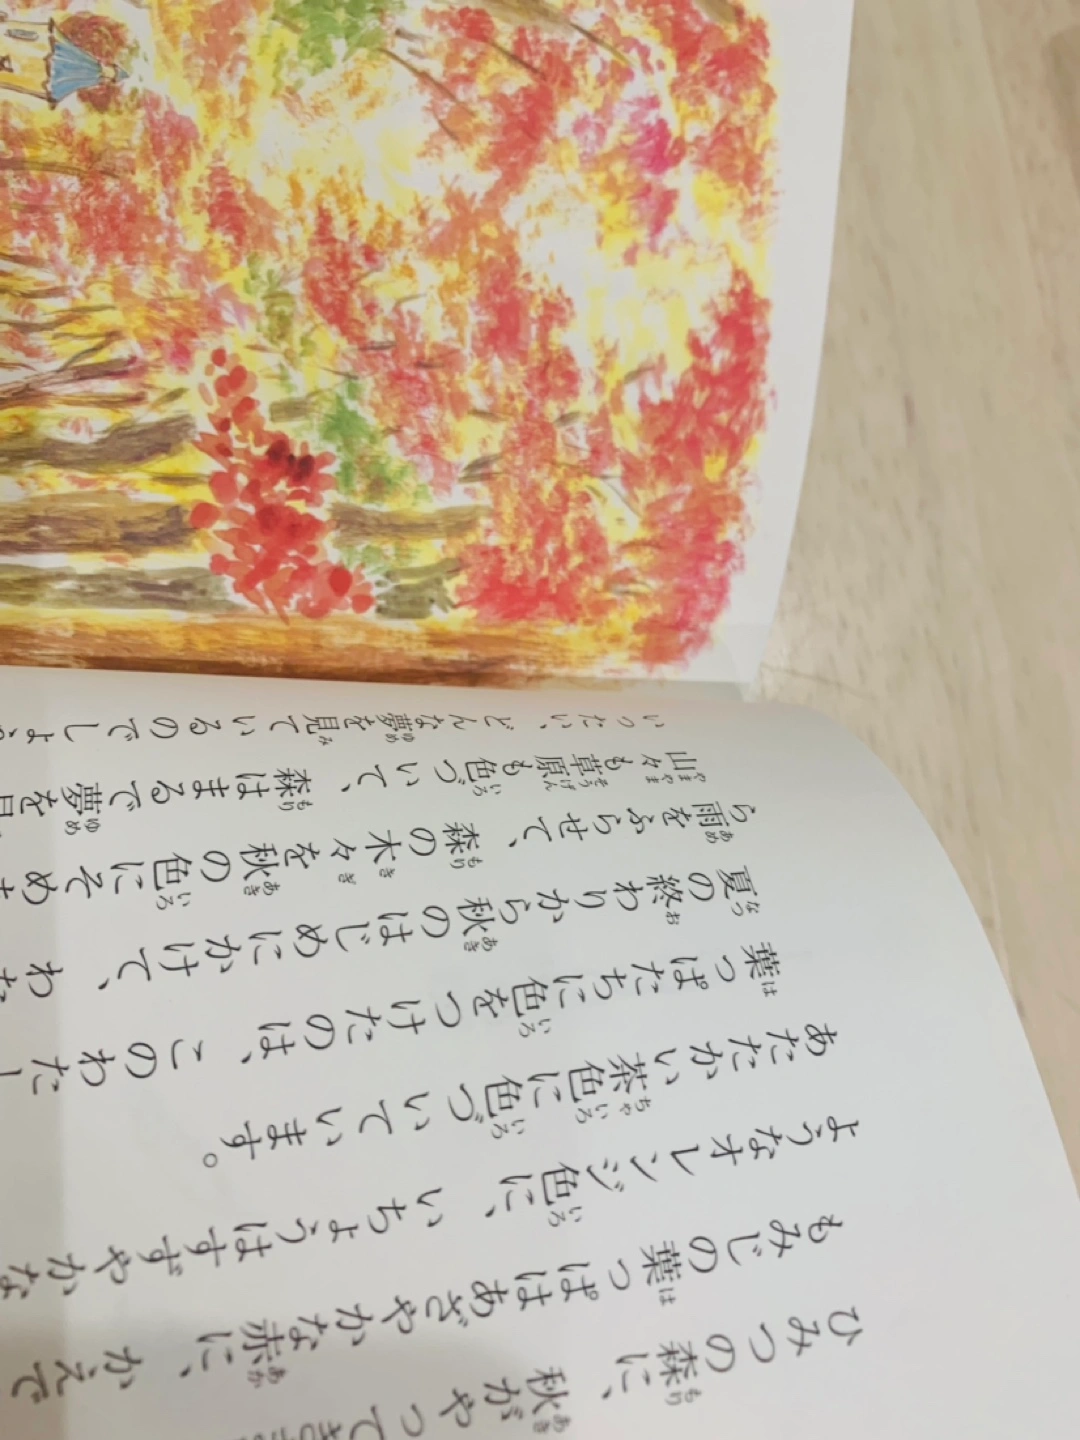 ひみつの森に、秋がやってき
もみじの葉っぱはあざやかな赤に、かえで
ようなオレンジ色に、いちょうはすずやかな
あたたかい茶色に色づいています。
葉っぱたちに色をつけたのは、このわたし
夏の終わりから秋のはじめにかけて、わた
ら雨をふらせて、森の木々を秋の色にそめ
山々も草原も色づいて、森はまるで夢を見
いったい、どんな夢を見ているのでしょ